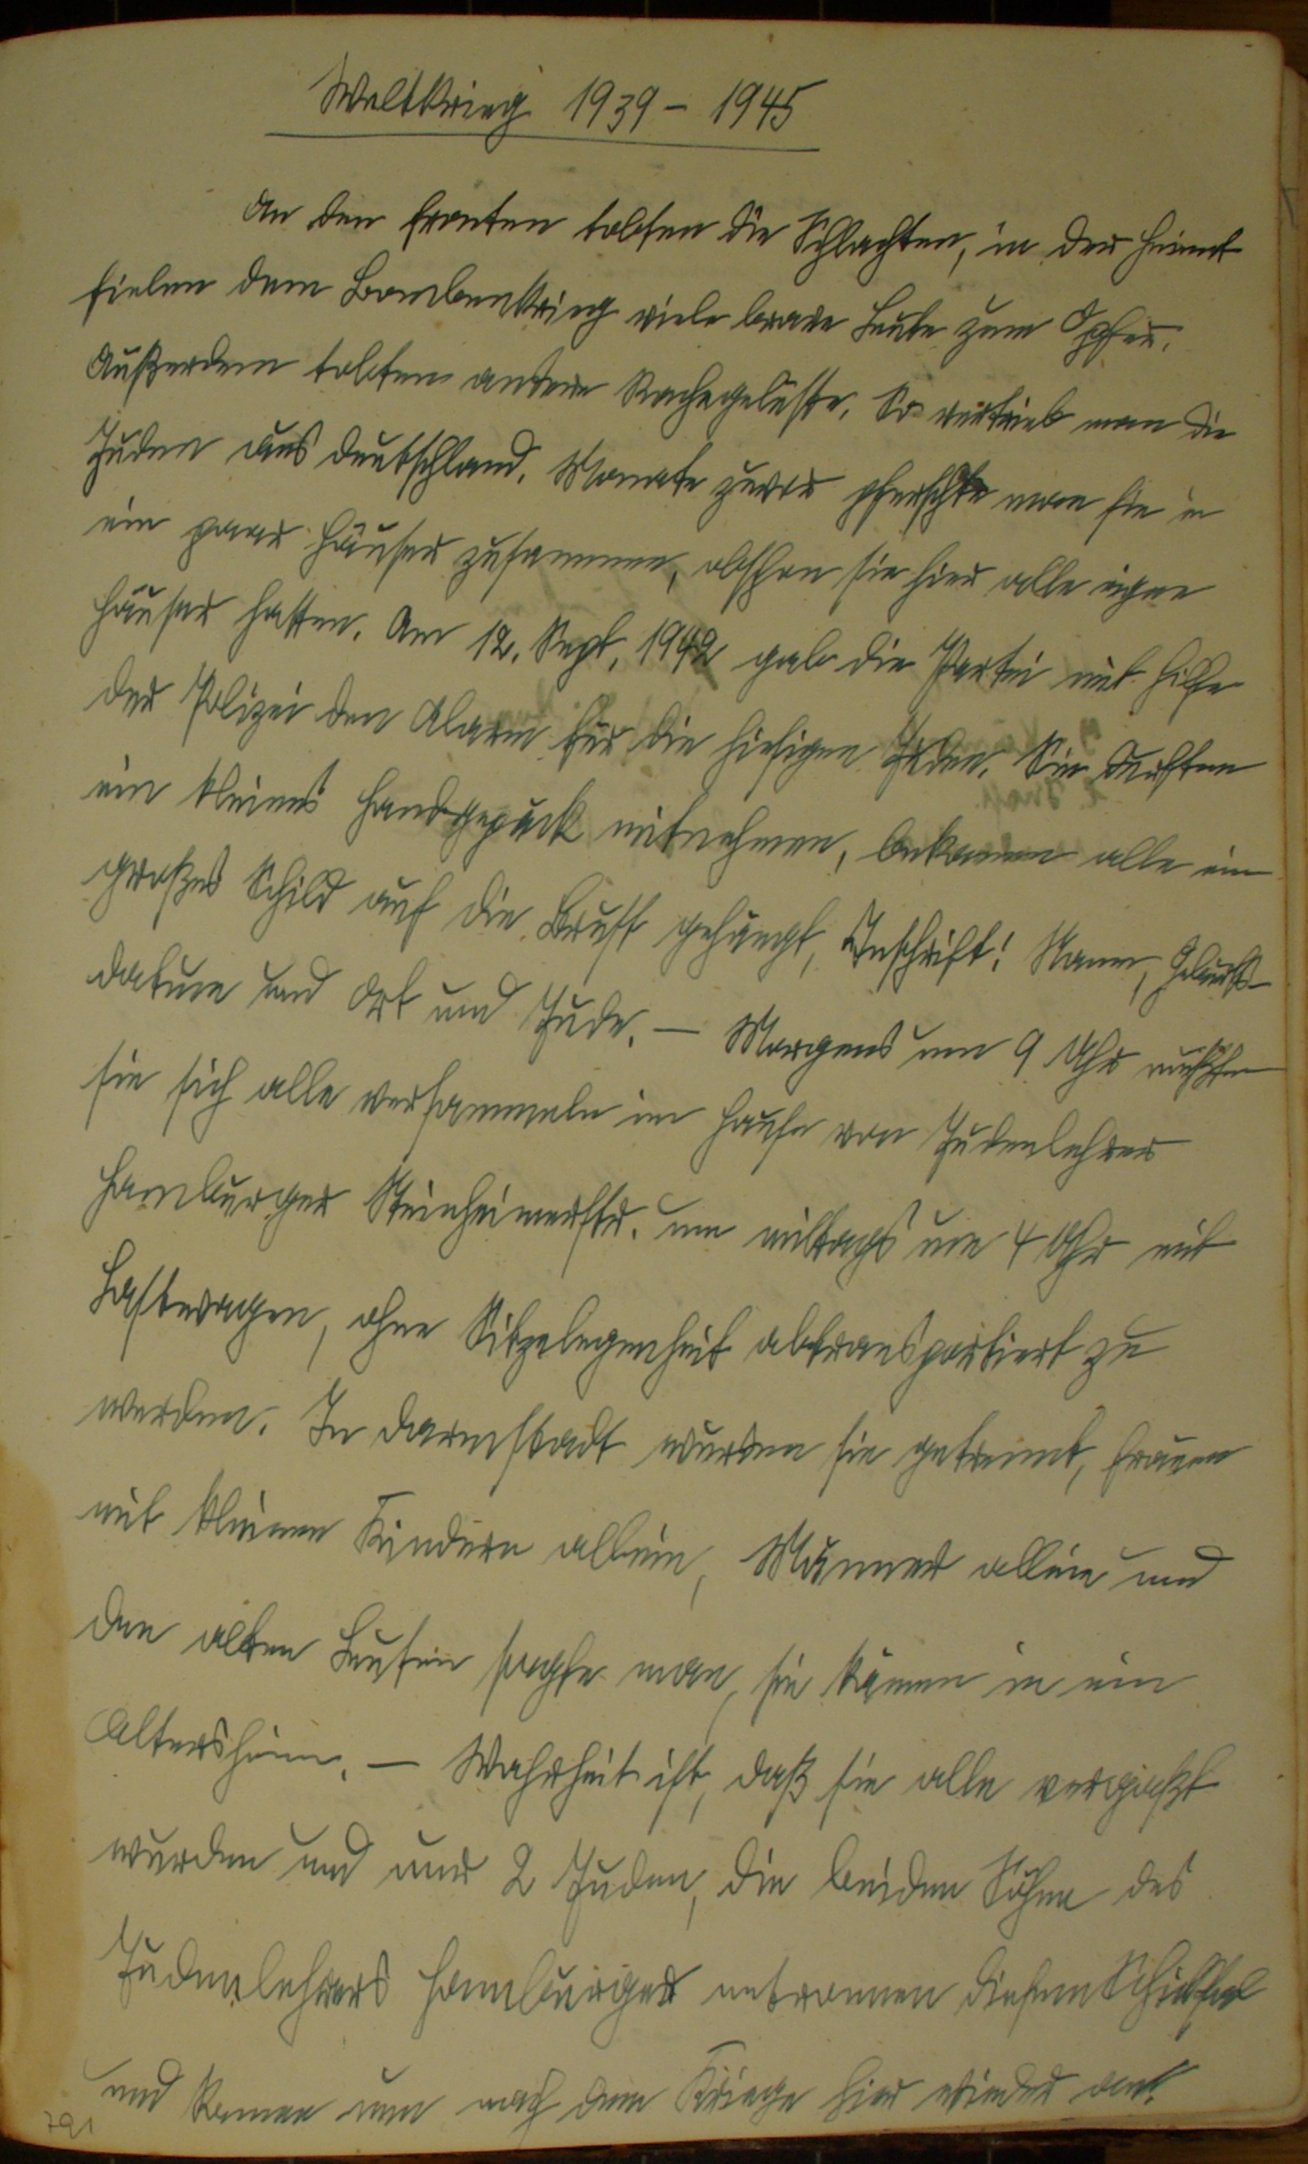 Weltkrieg 1939 - 1945
An den Fronten tobten die Schlachten, in der Heimat
fielen dem Bombenkrieg viele brave Leute zum Opfer.
Außerdem tobten andere Rachegelüste. So vertrieb man die
Juden aus Deutschland. Monate zuvor pferchte man sie in
ein paar Häuser zusammen, obschon sie hier alle eigne
Häuser hatten. Am 12. Sept. 1942 gab die Partei mit Hilfe
der Polizei den Alarm für die hiesigen Juden. Sie durften
ein kleines Handgepäck mitnehmen, bekamen alle ein
großes Schild auf die Brust gehängt, Inschrift: Name, Geburts-
datum und Ort und Jude. — Morgens um 9 Uhr mußten
sie sich alle versammeln im Hause von Judenlehrer
Hamburger Steinheimerstr. um mittags um 4 Uhr mit
Lastwagen, ohne Sitzgelegenheit abtransportiert zu
werden. In Darmstadt wurden sie getrennt, Frauen
mit kleinen Kindern allein, Männer allein und
den alten Leuten sagte man, sie kämen in ein
Altersheim. — Wahrheit ist, daß sie alle vergast
wurden und nur 2 Juden, die beiden Söhne des
Judenlehrers Hamburger entronnen diesem Schicksal
und kamen nun nach dem Kriege hier wieder an.
791